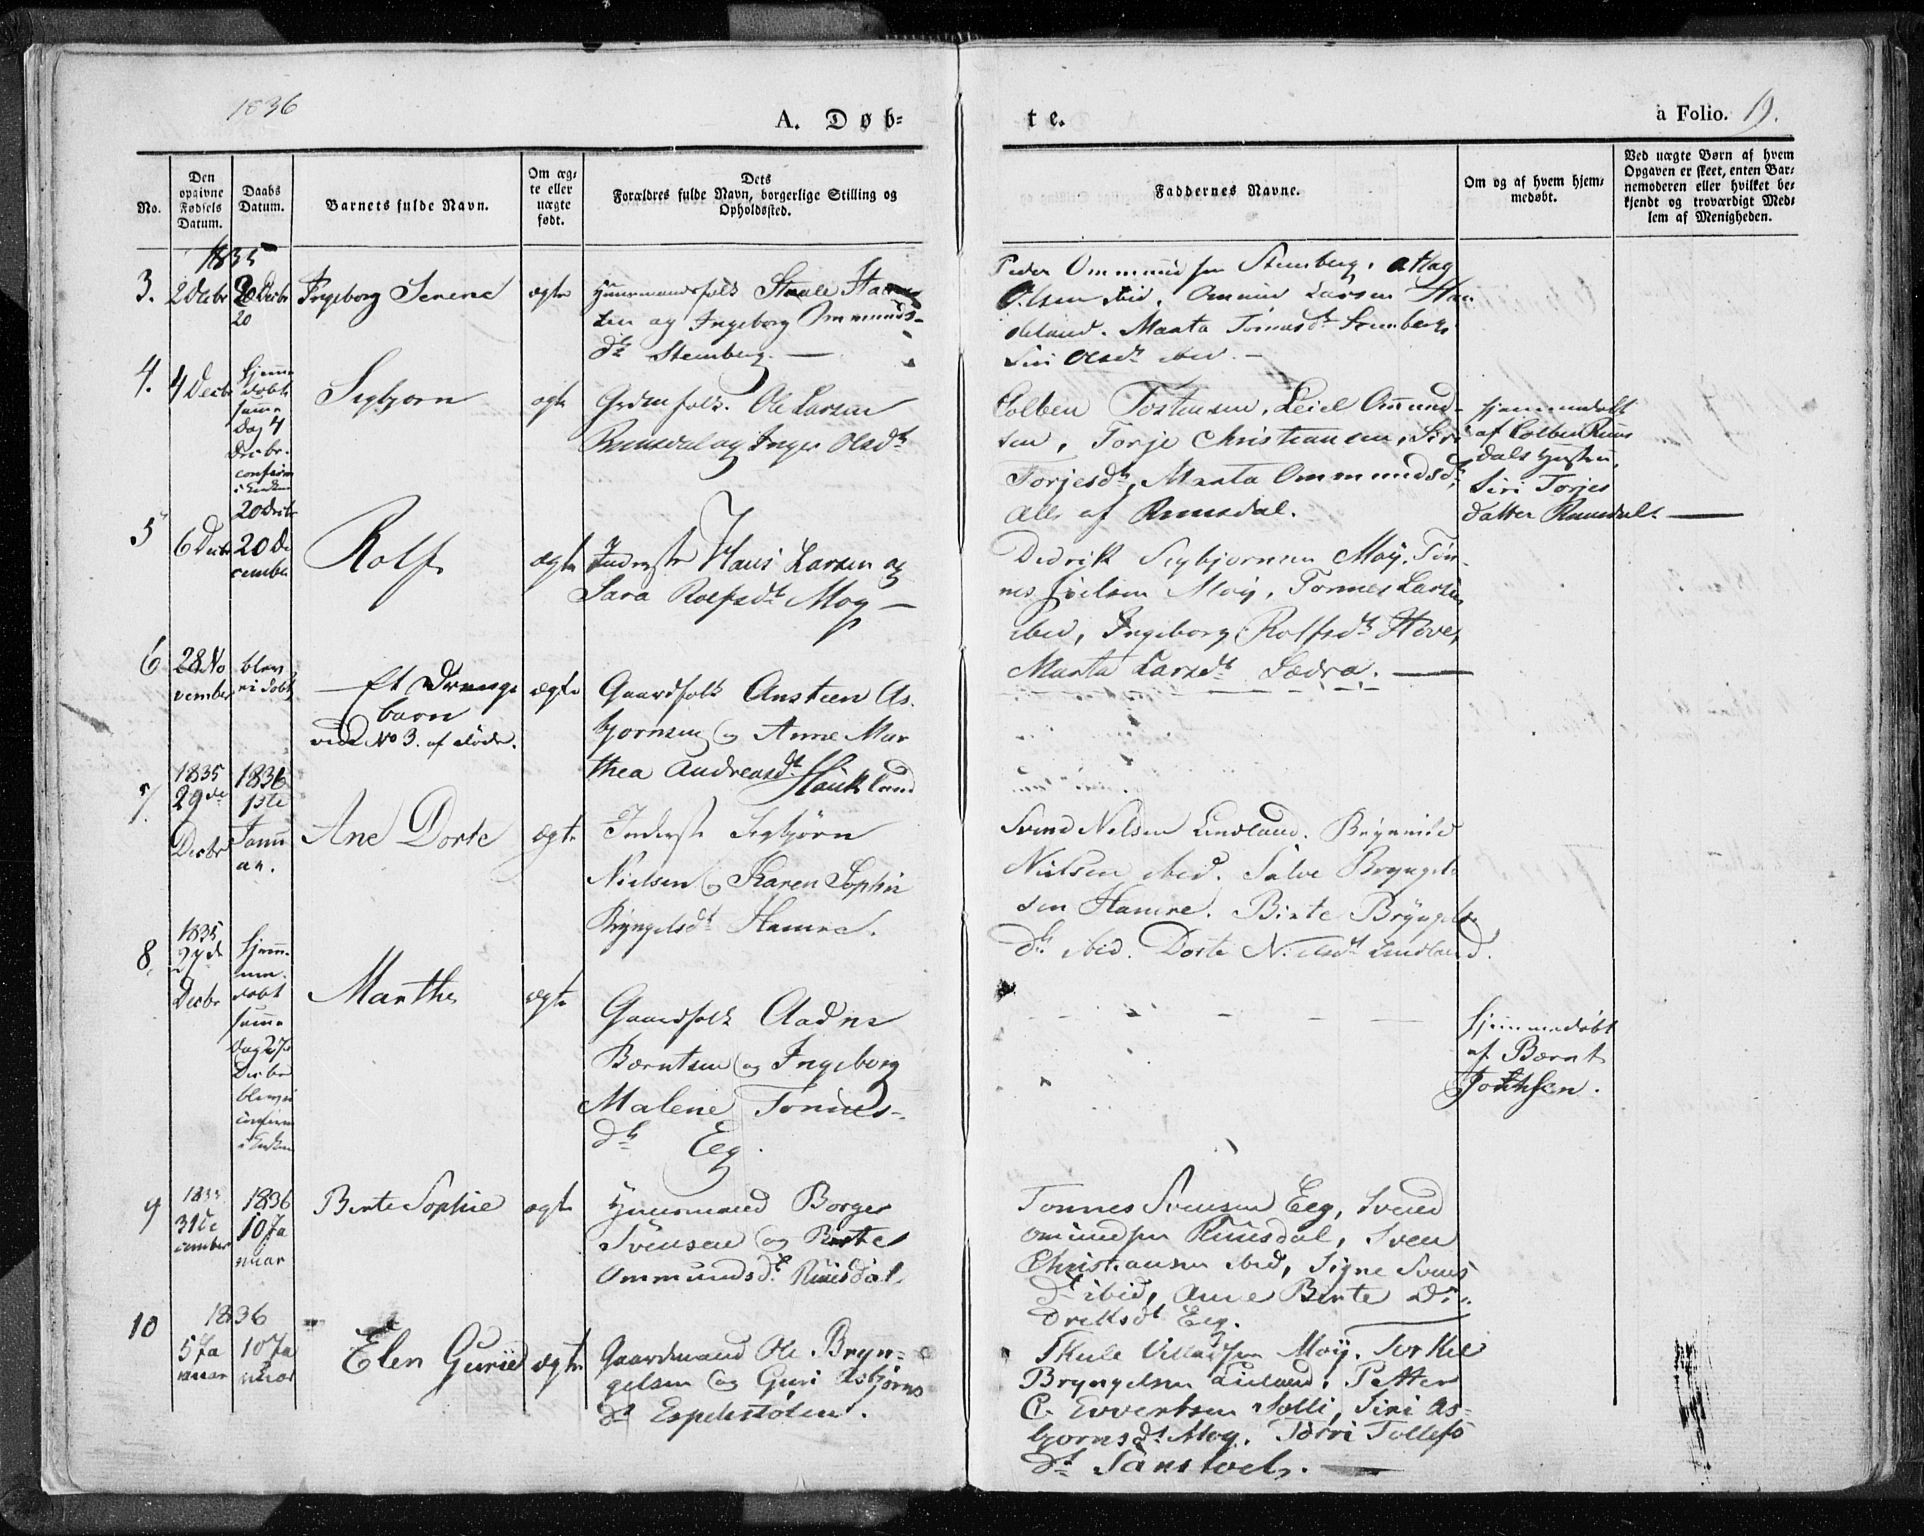 1836
A. Døb=
te.
a Folio. 19.
No.
Den opgivne Fødsels Datum.
Daabs Datum.
Barnets fulde Navn.
Om æg=
te eller
uægte
født.
Dets
Forældres fulde Navn, borgerlige Stilling og
Opholdssted.
Faddernes Navne.
Om og af hvem hjem=
medøbt.
Ved uægte Børn af hvem
Opgaven er skeet, enten Bar=
nemoderen eller hvilket be=
kjendt og troværdigt Med=
lem af Menigheden.
1835
3. 2 Decbr 20 Decbr
20
Ingeborg Serene
ægte
Huusmandsfolk Staale
og Ingeborg Ommunds-
dt Stemberg. —
Peder Ommundsen Stemberg,
Olsen ibid, Ommun Larsen
Marta Tønnesdt Stemberg
Siri Olsdt ibid. —
4. 4 Decbr
Hjemme
døbt
samme
Dag 4
Decbr.
confirm
i Kirken
20 Decbr
Segbjørn
ægte
Gaardfolk. Ole Larsen
Ruusdal og Inger Olsdt
Colben Tostensen, Leiel Omund-
sen, Torje Christiansen, Siri
Torjesdt, Marta Ommundsdt,
alle af Ruusdal.
hjemmedøbt
af Colben Ruus
dals Hustru,
Siri Torjes
datter Ruusdal. —
5 6 Decbr 20 De
cember
Rolf
ægte
Inderste Hans Larsen og
Sara Rolfsdt Moy —
Dedrik Segbjørnsen Moy, Tøn-
nes Moy, Tønnes Larsen
ibid, Ingeborg Rolfsdt Hove,
Marta Larsdt Sædra. —
6 28 No
vember
blev
ei døbt
Et Drenge
barn
vide No 3. af døde.
ægte
Gaardfolk Ansteen As-
bjørnsen og Anne Mar
thea Andreasdt Haukland
7. 1835
29de
Decbr
1836
1ste
Janu
ar.
Ane Dorte
ægte
Inderste Segbjørn
Nielsen og Karen Sophie
Bryngelsdt Hamre.
Svend Nielsen Lindland.
Nielsen ibid. Salve Bryngel-
sen Hamre. Birte Bryngels
dt ibid. Dorte Nielsdt Lindland.
8. 1835
27de
Decbr
hjem-
me-
døbt
samme
Dag 27de
Decbr
blev
confirm
i Kirken
Marthe
ægte
Gaardfolk Aadne
Bærntsen og Ingeborg
Malene Tønnes-
dt Eeg.
hjemmedøbt
af Bærnt
9 1835
31 De
cember
1836
10 Ja
nuar
Berte Sophie
ægte
Huusmand Borger
Svensen og Berte
Ommundsdt Ruusdal
Tønnes Svensen Eeg, Svend
Omundsen Ruusdal, Sven
Christiansen ibid, Signe Svens
dt ibid, Anne Berte Di-
driksdt Eeg.
10 1836
5 Ja
nuar
10 Ja
nuar
Elen Gurie
ægte
Gaardmand Ole Bryn-
gelsen og Guri Asbjørns
dt Espelistølen.
Skule Villadsen Moy, Torkel
Bryngelsen Lieland, Petter
C. Evertsen Solli, Siri As-
bjørnsdt Moy, Torri Tollefs
dt